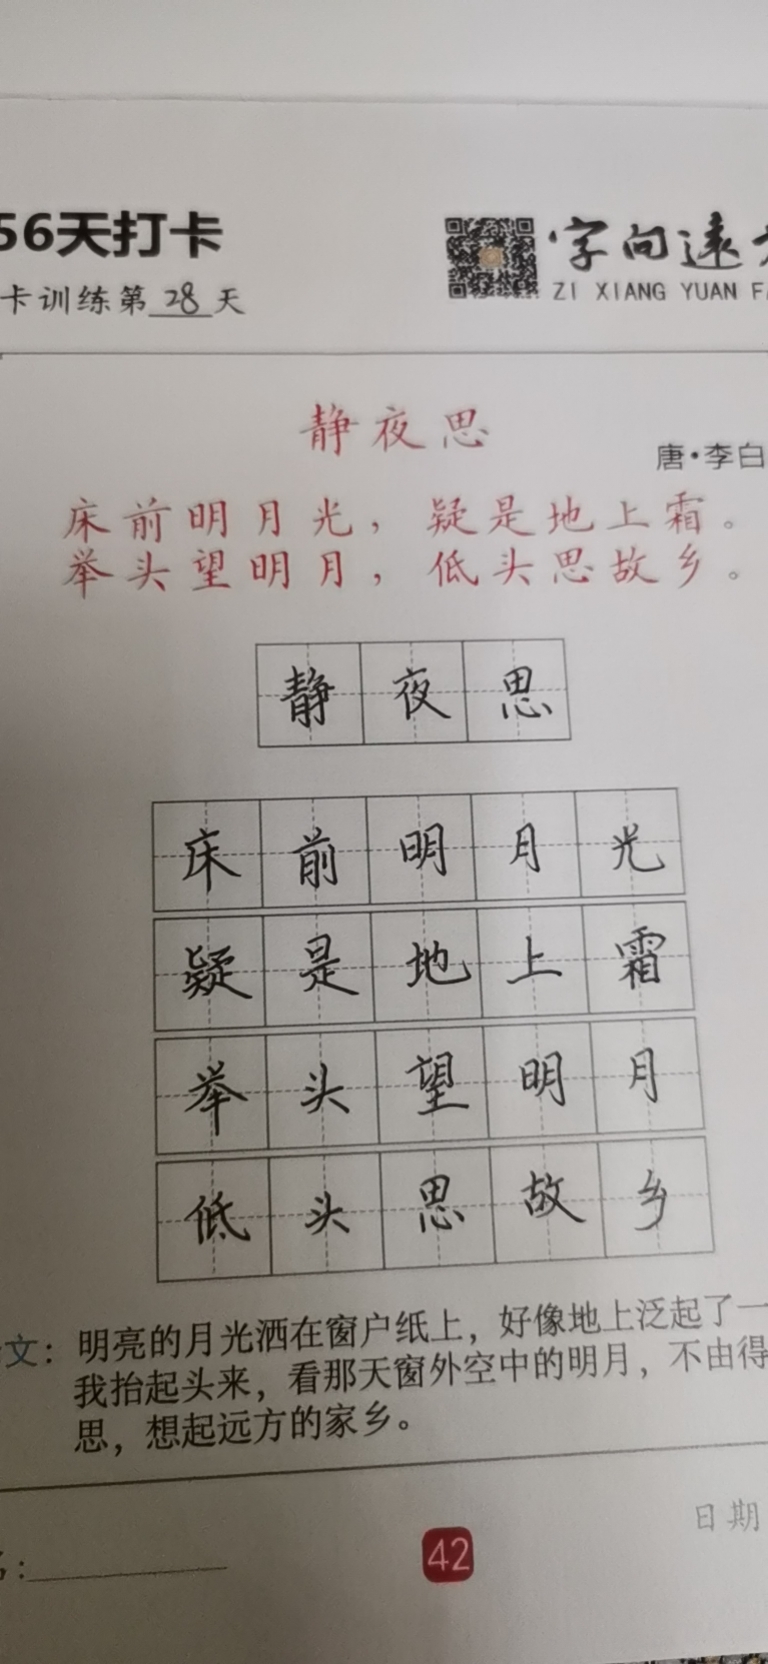 56天打卡
卡训练第28天
字向遠
ZI XIANG YUAN F
静夜思
唐·李白
床前明月光，疑是地上霜。
举头望明月，低头思故乡。
静夜思
床前明月光
疑是地上霜
举头望明月
低头思故乡
文：明亮的月光洒在窗户纸上，好像地上泛起了一
我抬起头来，看那天窗外空中的明月，不由得
思，想起远方的家乡。
日期
42